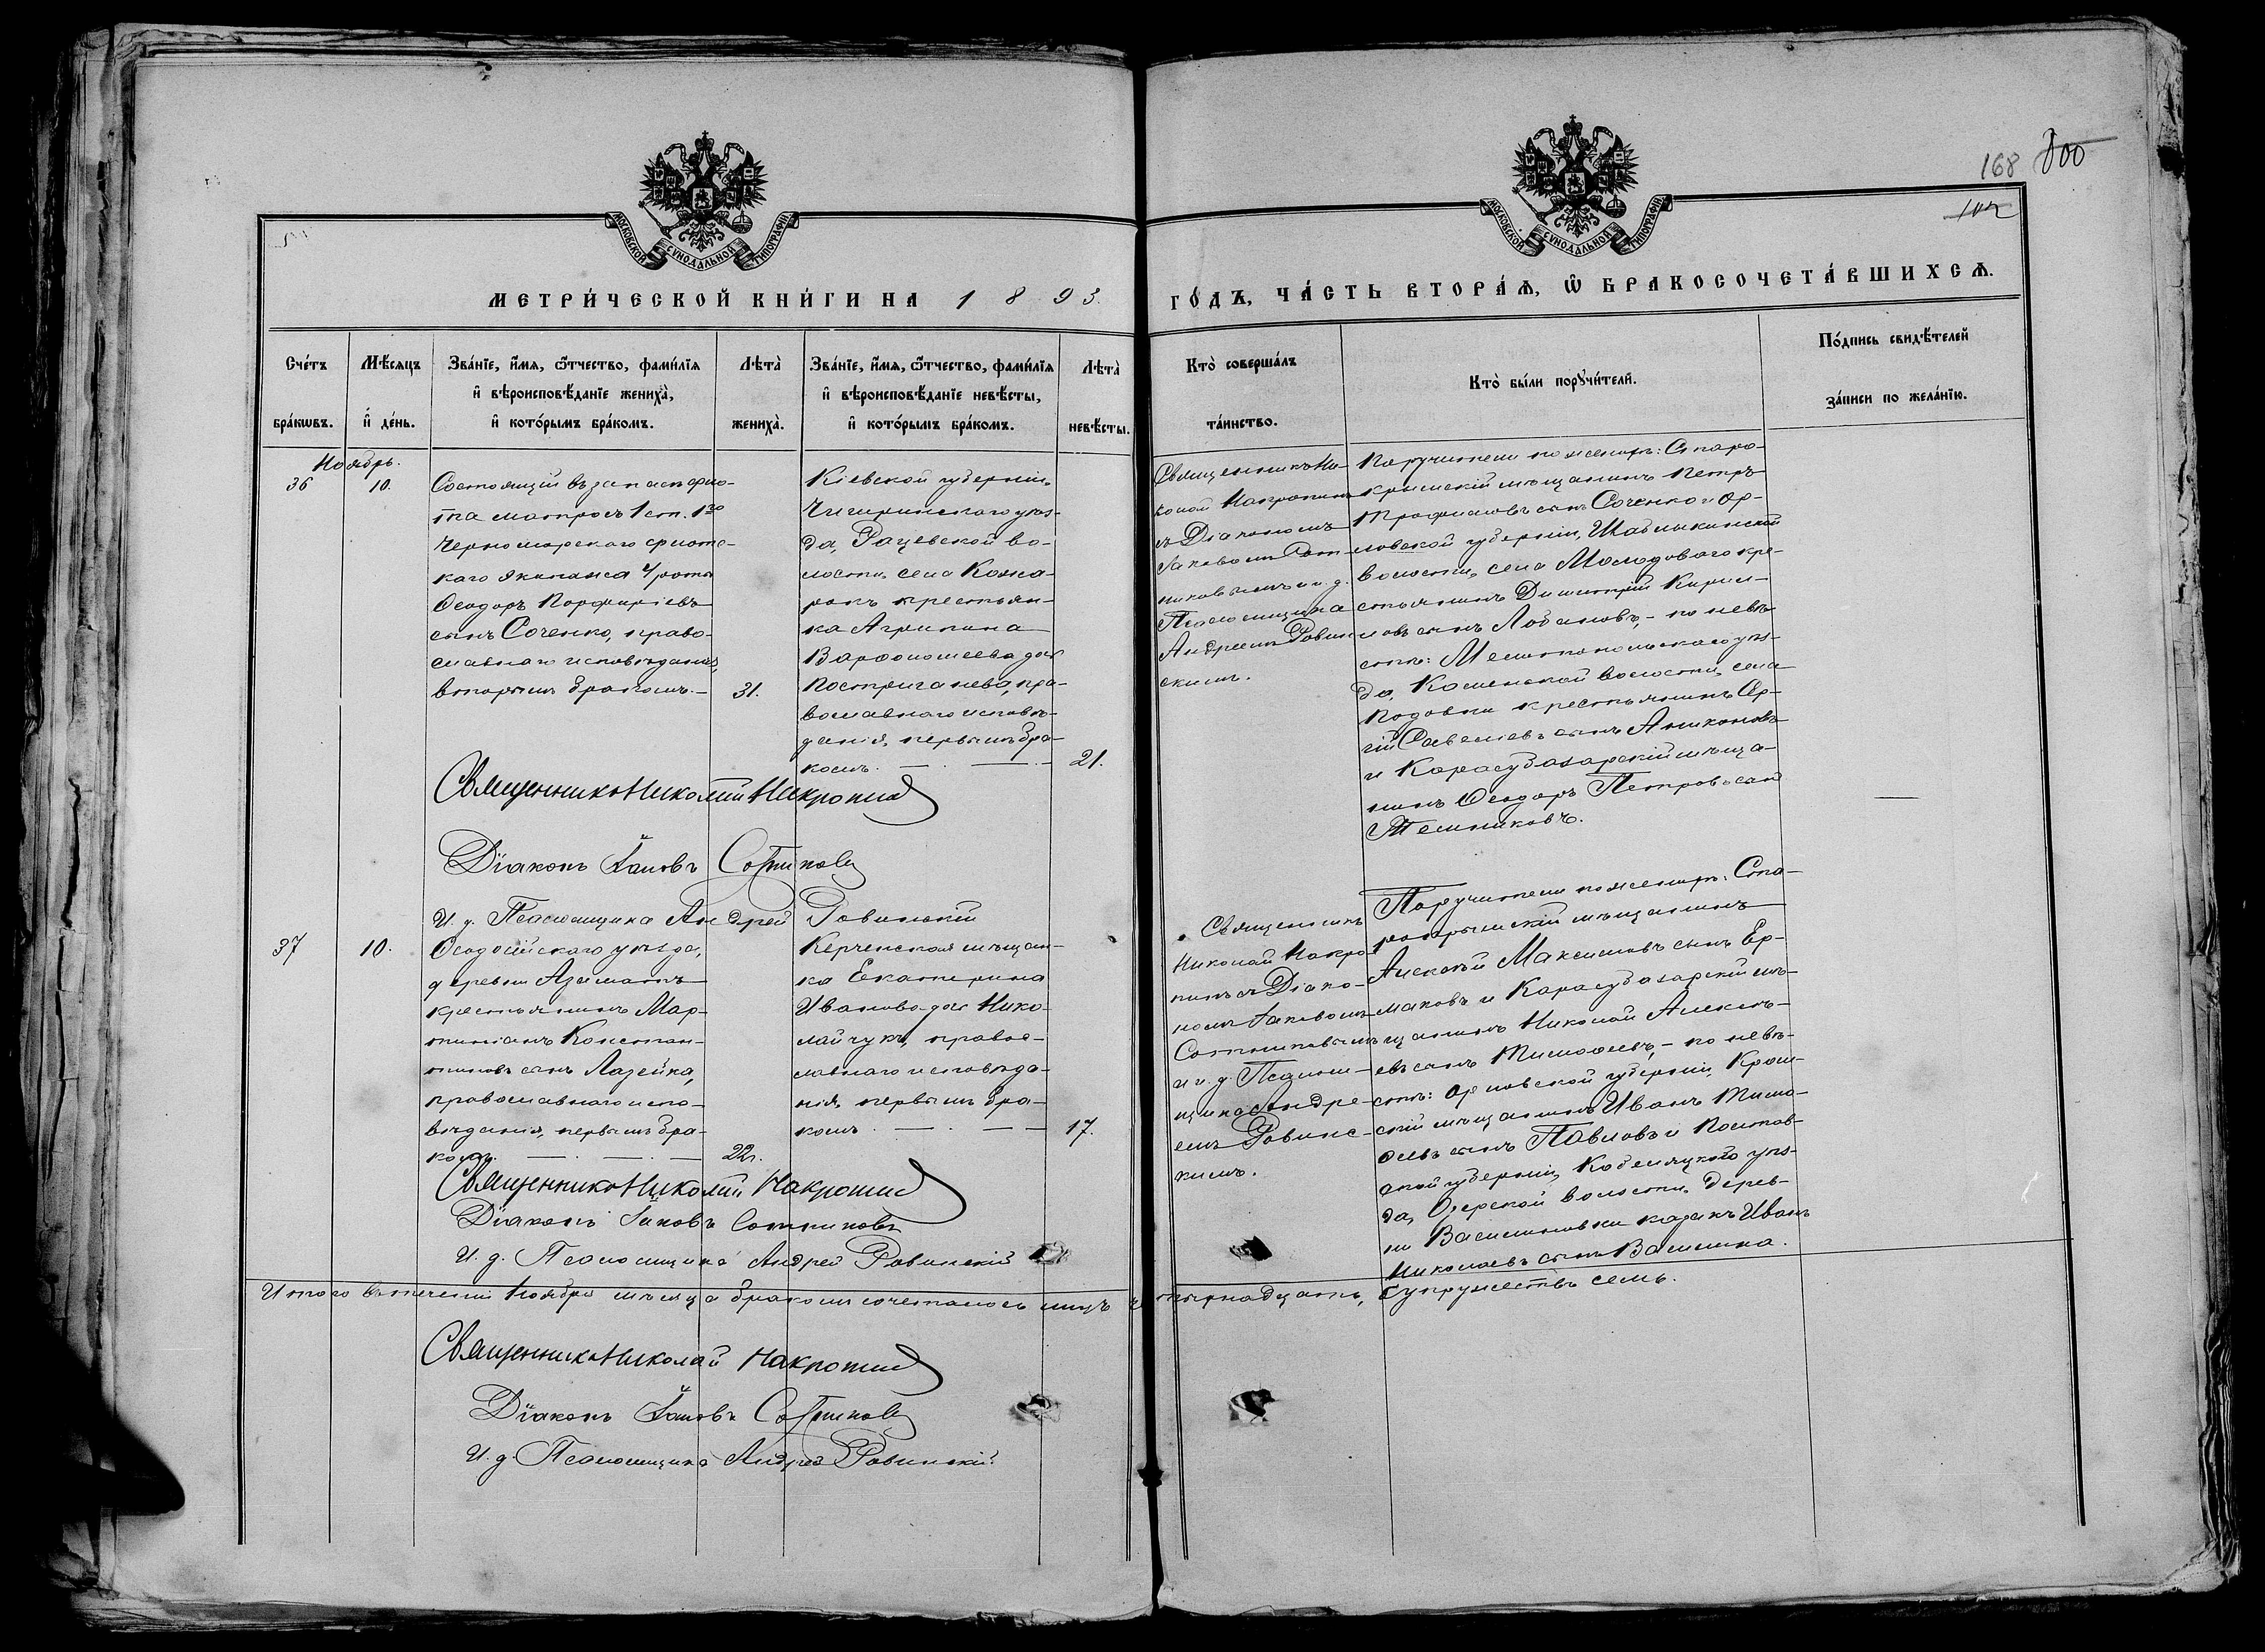 168 800
102
МОСКОВСКОЙ СУНОДАЛЬНОЙ ТИПОГРАФІИ
МОСКОВСКОЙ СУНОДАЛЬНОЙ ТИПОГРАФІИ
МЕТРИ́ЧЕСКОЙ КНИ́ГИ НА 1893.
ГО́ДЪ, ЧА́СТЬ ВТОРА́Ѧ, Ѿ БРАКОСОЧЕТА́ВШИХСѦ.
Сче́тъ бра́кѡвъ.
Мѣ́сяцъ и҆ де́нь.
Зва́нїе, и҆́мя, ѻ҆́тчество, фами́лїя
и҆ вѣроисповѣ́данїе жениха̀,
и҆ кото́рымъ бра́комъ.
Лѣта̀ жениха̀.
Зва́нїе, и҆́мя, ѻ҆́тчество, фами́лїя
и҆ вѣроисповѣ́данїе невѣ́сты,
и҆ кото́рымъ бра́комъ.
Лѣта̀ невѣ́сты.
Кто̀ соверша́лъ
та́инство.
Кто̀ бы́ли порꙋчи́тели.
По́дпись свидѣ́телей
за́писи по жела́нїю.
Ноябрь.
36
10.
Состоящій въ запасѣ фло-
та матросъ 1 ст. 1го
Черноморскаго флотс-
каго экипажа 4 роты
Ѳеодоръ Порфиріевъ
сынъ Соченко, право-
славнаго исповѣданія,
вторымъ бракомъ.—
31.
Кіевской губерніи,
Чигиринскаго уѣз-
да, Рацевской во-
лости, села Кожа-
рокъ крестьян-
ка Агрипина
Варѳоломеева доч
Постриганева, пра-
вославнаго исповѣ-
данія, первымъ бра-
комъ.
21.
Священникъ Ни-
колай Макротинъ
съ Діакономъ
Іаковомъ Сот-
никовымъ и и. д.
Псаломщика
Андреемъ Ровин-
скимъ.
Поручители по женихѣ: Старо-
крымскій мѣщанинъ Петръ
Трофимовъ сынъ Соченко и Ор-
ловской губерніи, Шаблыкинской
волости, села Молодового кре-
стьянинъ Димитрій Кирил-
ловъ сынъ Лобановъ,— по невѣ-
стѣ: Мелитопольскаго уѣз-
да, Каменской волости, села
Подовки крестьянинъ Сер-
гій Савельевъ сынъ Аникановъ
и Карасубазарскій мѣща-
нинъ Ѳеодоръ Петровъ сын
Темниковъ.
Священникъ Николай Макротинъ
Діаконъ Іаковъ Сотниковъ
И. д. Псаломщика Андрей Ровинскій
37
10.
Ѳеодосійскаго уѣзда,
деревни Азаматъ
крестьянинъ Мар-
тиніанъ Констан-
тиновъ сынъ Лазейка,
православнаго испо-
вѣданія, первымъ бра-
комъ.
22.
Керченская мѣщан-
ка Екатерина
Иванова доч Нико-
лайчукъ, правос-
лавнаго исповѣда-
нія, первымъ бра-
комъ.
17.
Священникъ
Николай Макро-
тинъ съ Діако-
номъ Іаковомъ
Сотниковымъ
и и. д. Псалом-
щика Андре-
емъ Ровинс-
кимъ.
Поручители по женихѣ: Ста-
рокрымскій мѣщанинъ
Алексѣй Максимовъ сынъ Ер-
маковъ и Карасубазарскій мѣ-
щанинъ Николай Алексѣ-
евъ сынъ Тимоѳеевъ,— по невѣ-
стѣ: Орловской губерніи, Кром-
скій мѣщанинъ Иванъ Тимо-
ѳеевъ сынъ Павловъ и Полтав-
ской губерніи, Кобеляцкаго уѣз-
да, Озерской волости, дерев-
ни Васильновки казакъ Иванъ
Николаевъ сынъ Вашкина.
Священникъ Николай Макротинъ
Діаконъ Іаковъ Сотниковъ
И. д. Псаломщика Андрей Ровинскій
Итого въ теченіи Ноября мѣсяца бракомъ сочеталось лицъ четырнадцать, супружествъ семь.
Священникъ Николай Макротинъ
Діаконъ Іаковъ Сотниковъ
И. д. Псаломщика Андрей Ровинскій.